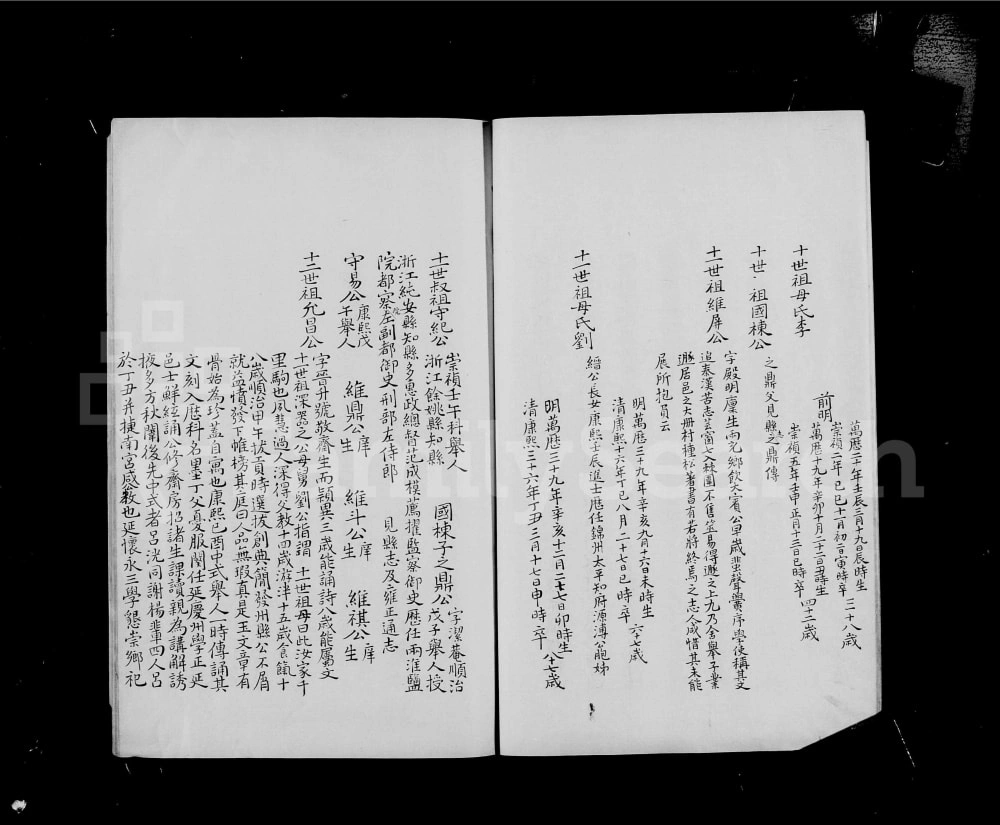 十世祖母氏李
萬曆二十年壬辰三月十九日辰時生
崇禎二年己巳十一月初二日寅時卒 三十八歲
前明
萬曆十九年辛卯十月二十三日丑時生
崇禎五年壬申正月十三日巳時卒 四十二歲
十世祖國棟公
之鼎父見縣志之鼎傳
十一世祖維屏公
字殿明廩生兩充鄉飲大賓公早歲蜚聲黌序學使稱其文
追秦漢苦志芸窗七入棘圍不售筮易得遯之上九乃舍舉子業
遯居邑之大册村種松著書有若將終焉之志人咸惜其未能
展所抱負云
明萬曆三十九年辛亥九月十六日未時生
清康熙十六年丁巳八月二十七日巳時卒 六十七歲
十一世祖母氏劉
縉公長女康熙壬辰進士歷任錦州太平知府源溥公胞姊
明萬曆三十九年辛亥十二月二十七日卯時生
清康熙三十六年丁丑三月十七日申時卒 八十七歲
十一世叔祖守紀公 崇禎壬午科舉人 國棟子之鼎公 字潔菴順治
浙江餘姚縣知縣 戊子舉人授
浙江純安縣知縣多惠政總督范成模薦擢監察御史歷任兩淮鹽
院都察院左副都御史刑部左侍郎 見縣志及雍正通志
守易公 康熙戊午舉人 維鼎公 庠生 維斗公 庠生 維祺公 庠生
十二世祖允昌公
字晉升號敬齋生而穎異三歲能誦詩八歲能屬文
十世祖深器之公母舅劉公指謂 十一世祖母曰此汝家千
里駒也夙慧過人深得父教十四歲游泮十五歲食餼十
八歲順治甲午拔貢時選拔創典簡發州縣公不屑
就益憤發下帷榜其庭曰人品無瑕真是玉文章有
骨始為珍蓋自寓也康熙己酉中式舉人一時傳誦其
文刻入歷科名墨丁父憂服闋任延慶州學正延
邑士鮮絃誦公修齋房招諸生課讀親為講解誘
掖多方秋闈後先中式者呂洸同謝楊輩四人呂
於丁丑并捷南宮感教也延懷永三學懇崇鄉祀